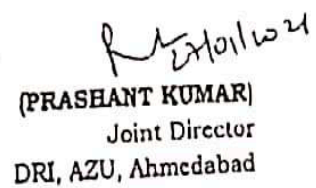 27/01/2021
(PRASHANT KUMAR)
Joint Director
DRI, AZU, Ahmedabad